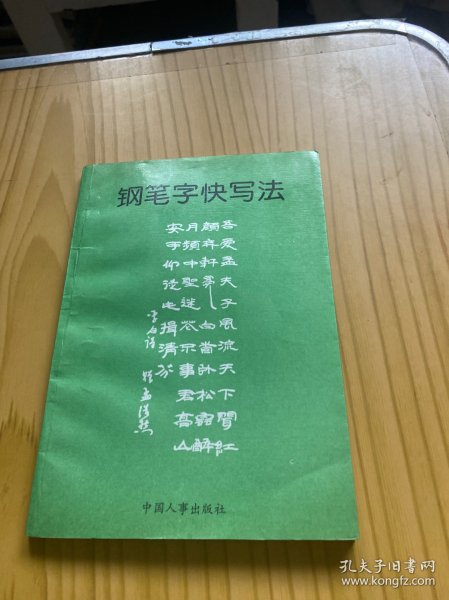 钢笔字快写法
吾爱孟夫子風流天下聞紅
顔棄軒冕白首卧松雲醉
月頻中聖迷花不事君高山
安可仰徒此揖清芬
李白詩 贈孟浩然
中国人事出版社
孔夫子旧书网
www.kongfz.com